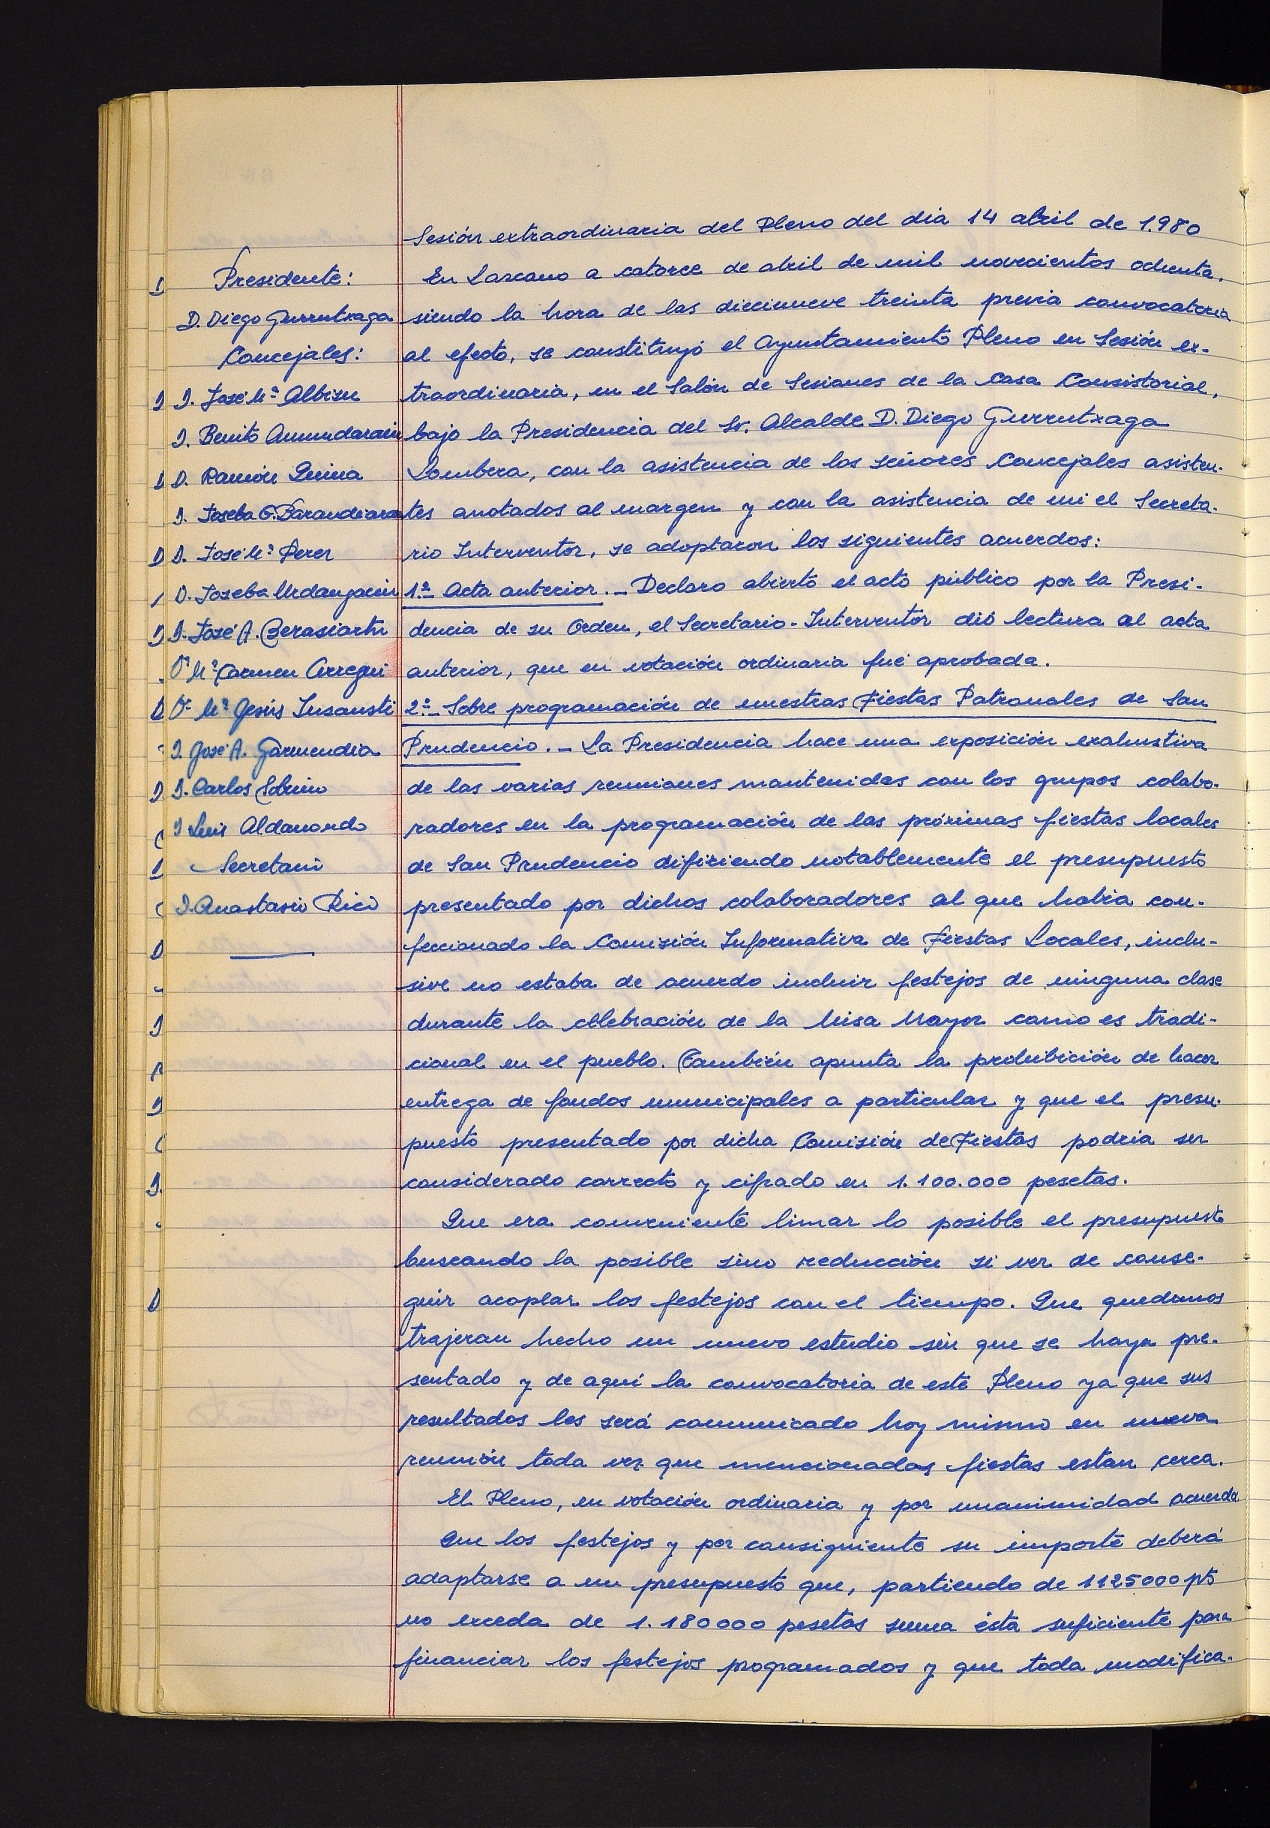 Sesión extraordinaria del Pleno del dia 14 abril de 1.980
Presidente:
D. Diego Gurrutxaga
Concejales:
D. José Mª Albisu
D. Benito Amundarain
D. Ramón
D. Joseba G. Barandiaran
D. José Mª Perez
D. Joseba Urdangarin
D. José A. Berasiartu
Dª Mª Carmen Arregui
Dª Mª Jesús Insausti
D. José A. Garmendia
D. Carlos Sobrino
D. Luis Aldanondo
Secretario
D. Anastasio Rico
En Lazcano a catorce de abril de mil novecientos ochenta,
siendo la hora de las diecinueve treinta previa convocatoria
al efecto, se constituyó el Ayuntamiento Pleno en Sesión ex-
traordinaria, en el Salón de Sesiones de la Casa Consistorial,
bajo la Presidencia del Sr. Alcalde D. Diego Gurrutxaga
Lombera, con la asistencia de los señores Concejales asisten-
tes anotados al margen y con la asistencia de mi el Secreta-
rio Interventor, se adoptaron los siguientes acuerdos:
1º Acta anterior. - Declaro abierto el acto público por la Presi-
dencia de su Orden, el Secretario-Interventor dió lectura al acta
anterior, que en votación ordinaria fué aprobada.
2º- Sobre programación de nuestras Fiestas Patronales de San
Prudencio. - La Presidencia hace una exposición exahustiva
de las varias reuniones mantenidas con los grupos colabo-
radores en la programación de las próximas fiestas locales
de San Prudencio dificiendo notablemente el presupuesto
presentado por dichos colaboradores al que habia con-
feccionado la Comisión Informativa de Fiestas Locales, inclu-
sive no estaba de acuerdo incluir festejos de ninguna clase
durante la cllebración de la Misa Mayor como es tradi-
cional en el pueblo. También apunta la prohibición de hacer
entrega de fondos municipales a particular y que el presu-
puesto presentado por dicha Comisión de Fiestas podria ser
considerado correcto y cifrado en 1.100.000 pesetas.
Que era conveniente limar lo posible el presupuesto
buscando la posible sino reducción si ver de conse-
guir acoplar los festejos con el tiempo. Que quedamos
trajeran hecho un nuevo estudio sin que se haya pre-
sentado y de aquí la convocatoria de este Pleno ya que sus
resultados les será comunicado hoy mismo en nueva
reunión toda vez que mencionadas fiestas estan cerca.
El Pleno, en votación ordinaria y por unanimidad acuerda
Que los festejos y por consiguiente su importe deberá
adaptarse a un presupuesto que, partiendo de 1125000 pts
no exceda de 1.180000 pesetas suma ésta suficiente para
financiar los festejos programados y que toda modifica-